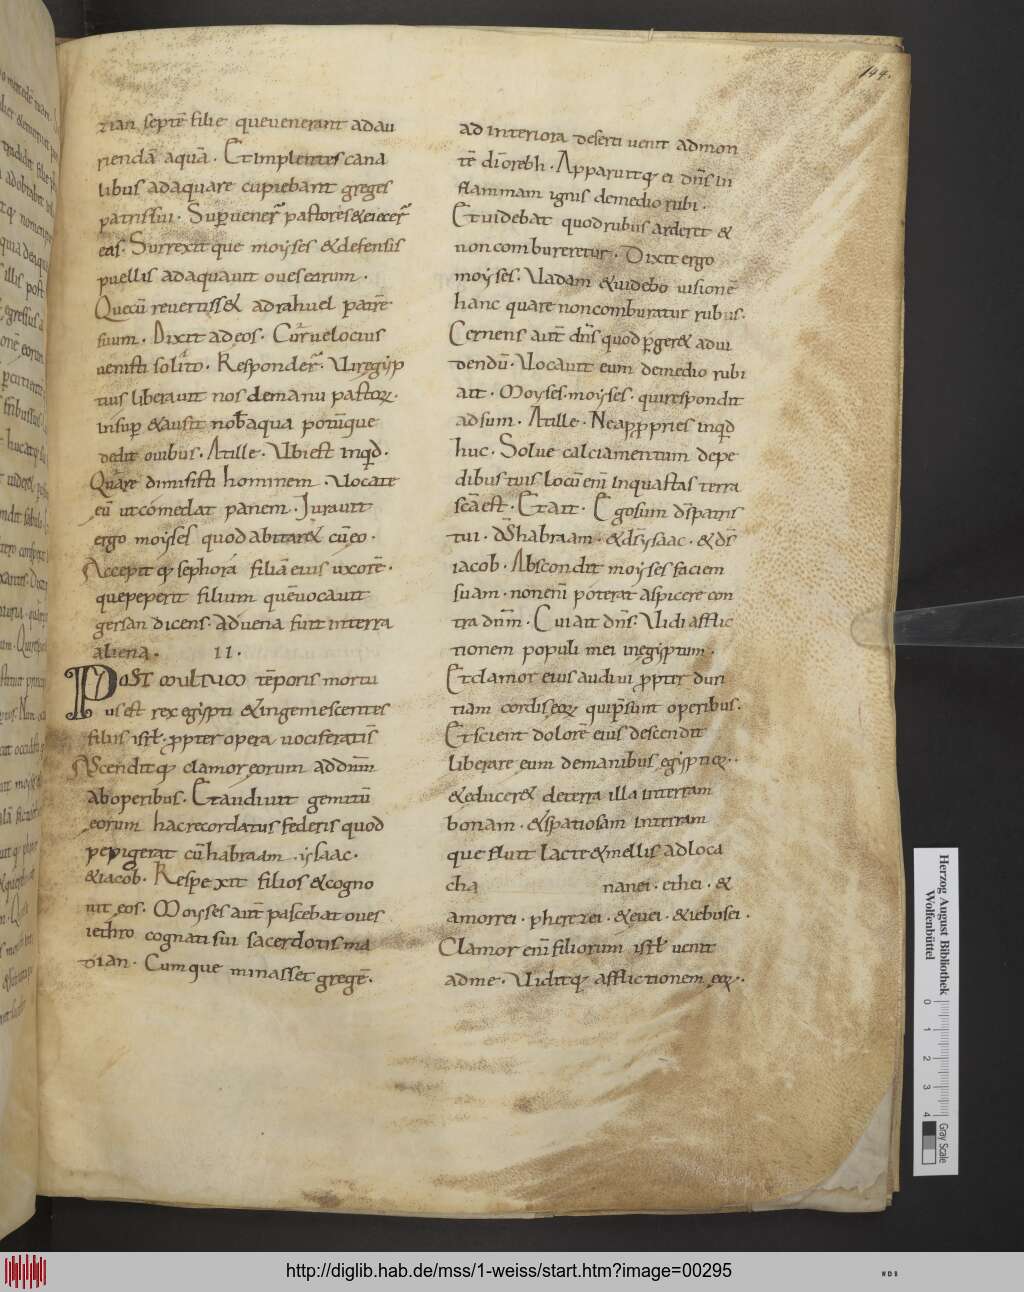 144.
tian septē filie que venerant ad au
riendā aquā. Et impletis cana
libus adaquare cupiebant greges
patris sui. Supervener̄ pastores & eiecer̄
eas. Surrexitque moẏses & defensis
puellis adaquavit oves earum.
Quecū revertiss& ad rahuel patrē
suum. Dixit ad eos. Cur velocius
venisti solito. Responder̄. Vir egẏp
tius liberavit nos de manu pastoꝝ.
insup̄ & ausit nob̄ aqua potūque
dedit ovibus. At ille. Ubi est inq̄d.
Quare dimisisti hominem. Vocate
eū ut comedat panem. Juravit
ergo moẏses quod abitar& cū eo.
Accepitq; sephora filiā eius uxorē.
que peperit filium quē vocavit
gersan dicens. advena fui in terra
aliena. II.
Post multum tēporis mortu
us est rex egẏpti & ingemescentes
filius isrl̄. p̄pter opera vociferati s̄
Ascenditq; clamor eorum ad dn̄m
ab operibus. Et audivit gemitū
eorum hac recordatus federis quod
pepigerat cū habraam. ẏsaac.
& iacob. Respexit filios & cogno
vit eos. Moyses aut̄ pascebat oves
iethro cognati sui sacerdotis ma
dian. Cumque minasset gregē.
ad interiora deserti venit ad mon
tē di̅ orebh. Apparuitq; ei dn̄s in
flammam ignis de medio rubi.
Et videbat quod rubus arderet &
non combureretur. Dixit ergo
moẏses. Vadam & videbo visionē
hanc quare non comburatur rubus.
Cernens aut̄ dn̄s quod p̄ger& ad vi
dendū. Vocavit eum de medio rubi
ait. Moyses. moẏses. qui respondit
adsum. At ille. Ne appropries inq̄d
huc. Solve calciamentum de pe
dibus tuis locū en̄ in qua stas terra
sc̄a est. Et ait. Ego sum d̄s patris
tui. d̄s habraam. & d̄s ẏsaac. & d̄s
iacob. Abscondit moẏses faciem
suam. non en̄ poterat aspicere con
tra dn̄m. Cui ait dn̄s. Vidi afflic
tionem populi mei in egẏptum.
Et clamor eius audivi p̄pter duri
tiam cordis eoꝝ qui p̄sunt operibus.
Et scient dolorē eius descendit
liberare eum de manibus egẏptioꝝ.
& educer& de terra illa in terram
bonam. & spatiosam in terram
que fluit lacte & mellis ad loca
cha nanei. ethei. &
amorrei. pherezei. & evei. & iebusei.
Clamor en̄ filiorum isrl̄ venit
ad me. Viditq; afflictionem eoꝝ.
Herzog August Bibliothek
Wolfenbüttel
0 1 2 3 4
Gray Scale
http://diglib.hab.de/mss/1-weiss/start.htm?image=00295